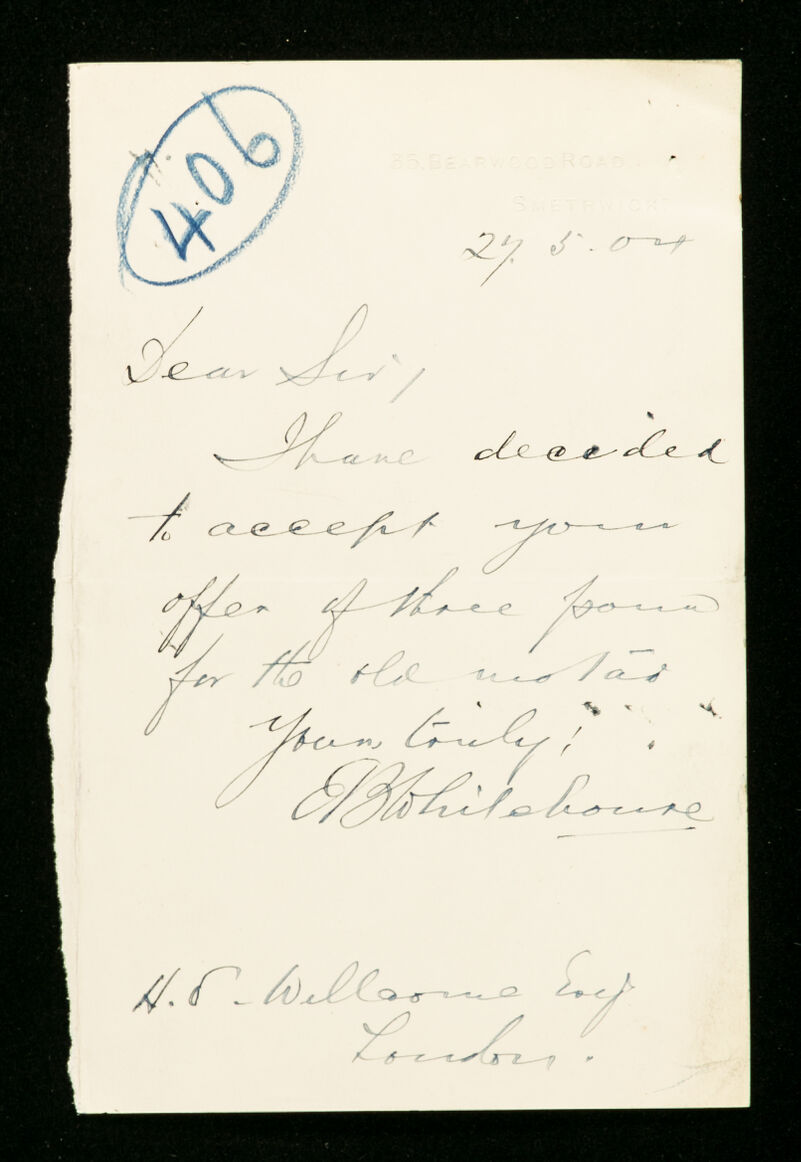 406
35, BEARWOOD ROAD
SMETHWICK
27. 5. 04
Dear Sir,
I have decided
to accept your
offer of three poun
for the old mortar
Yours truly,
EB Whitehouse
H. S. Wellcome Esq
London.